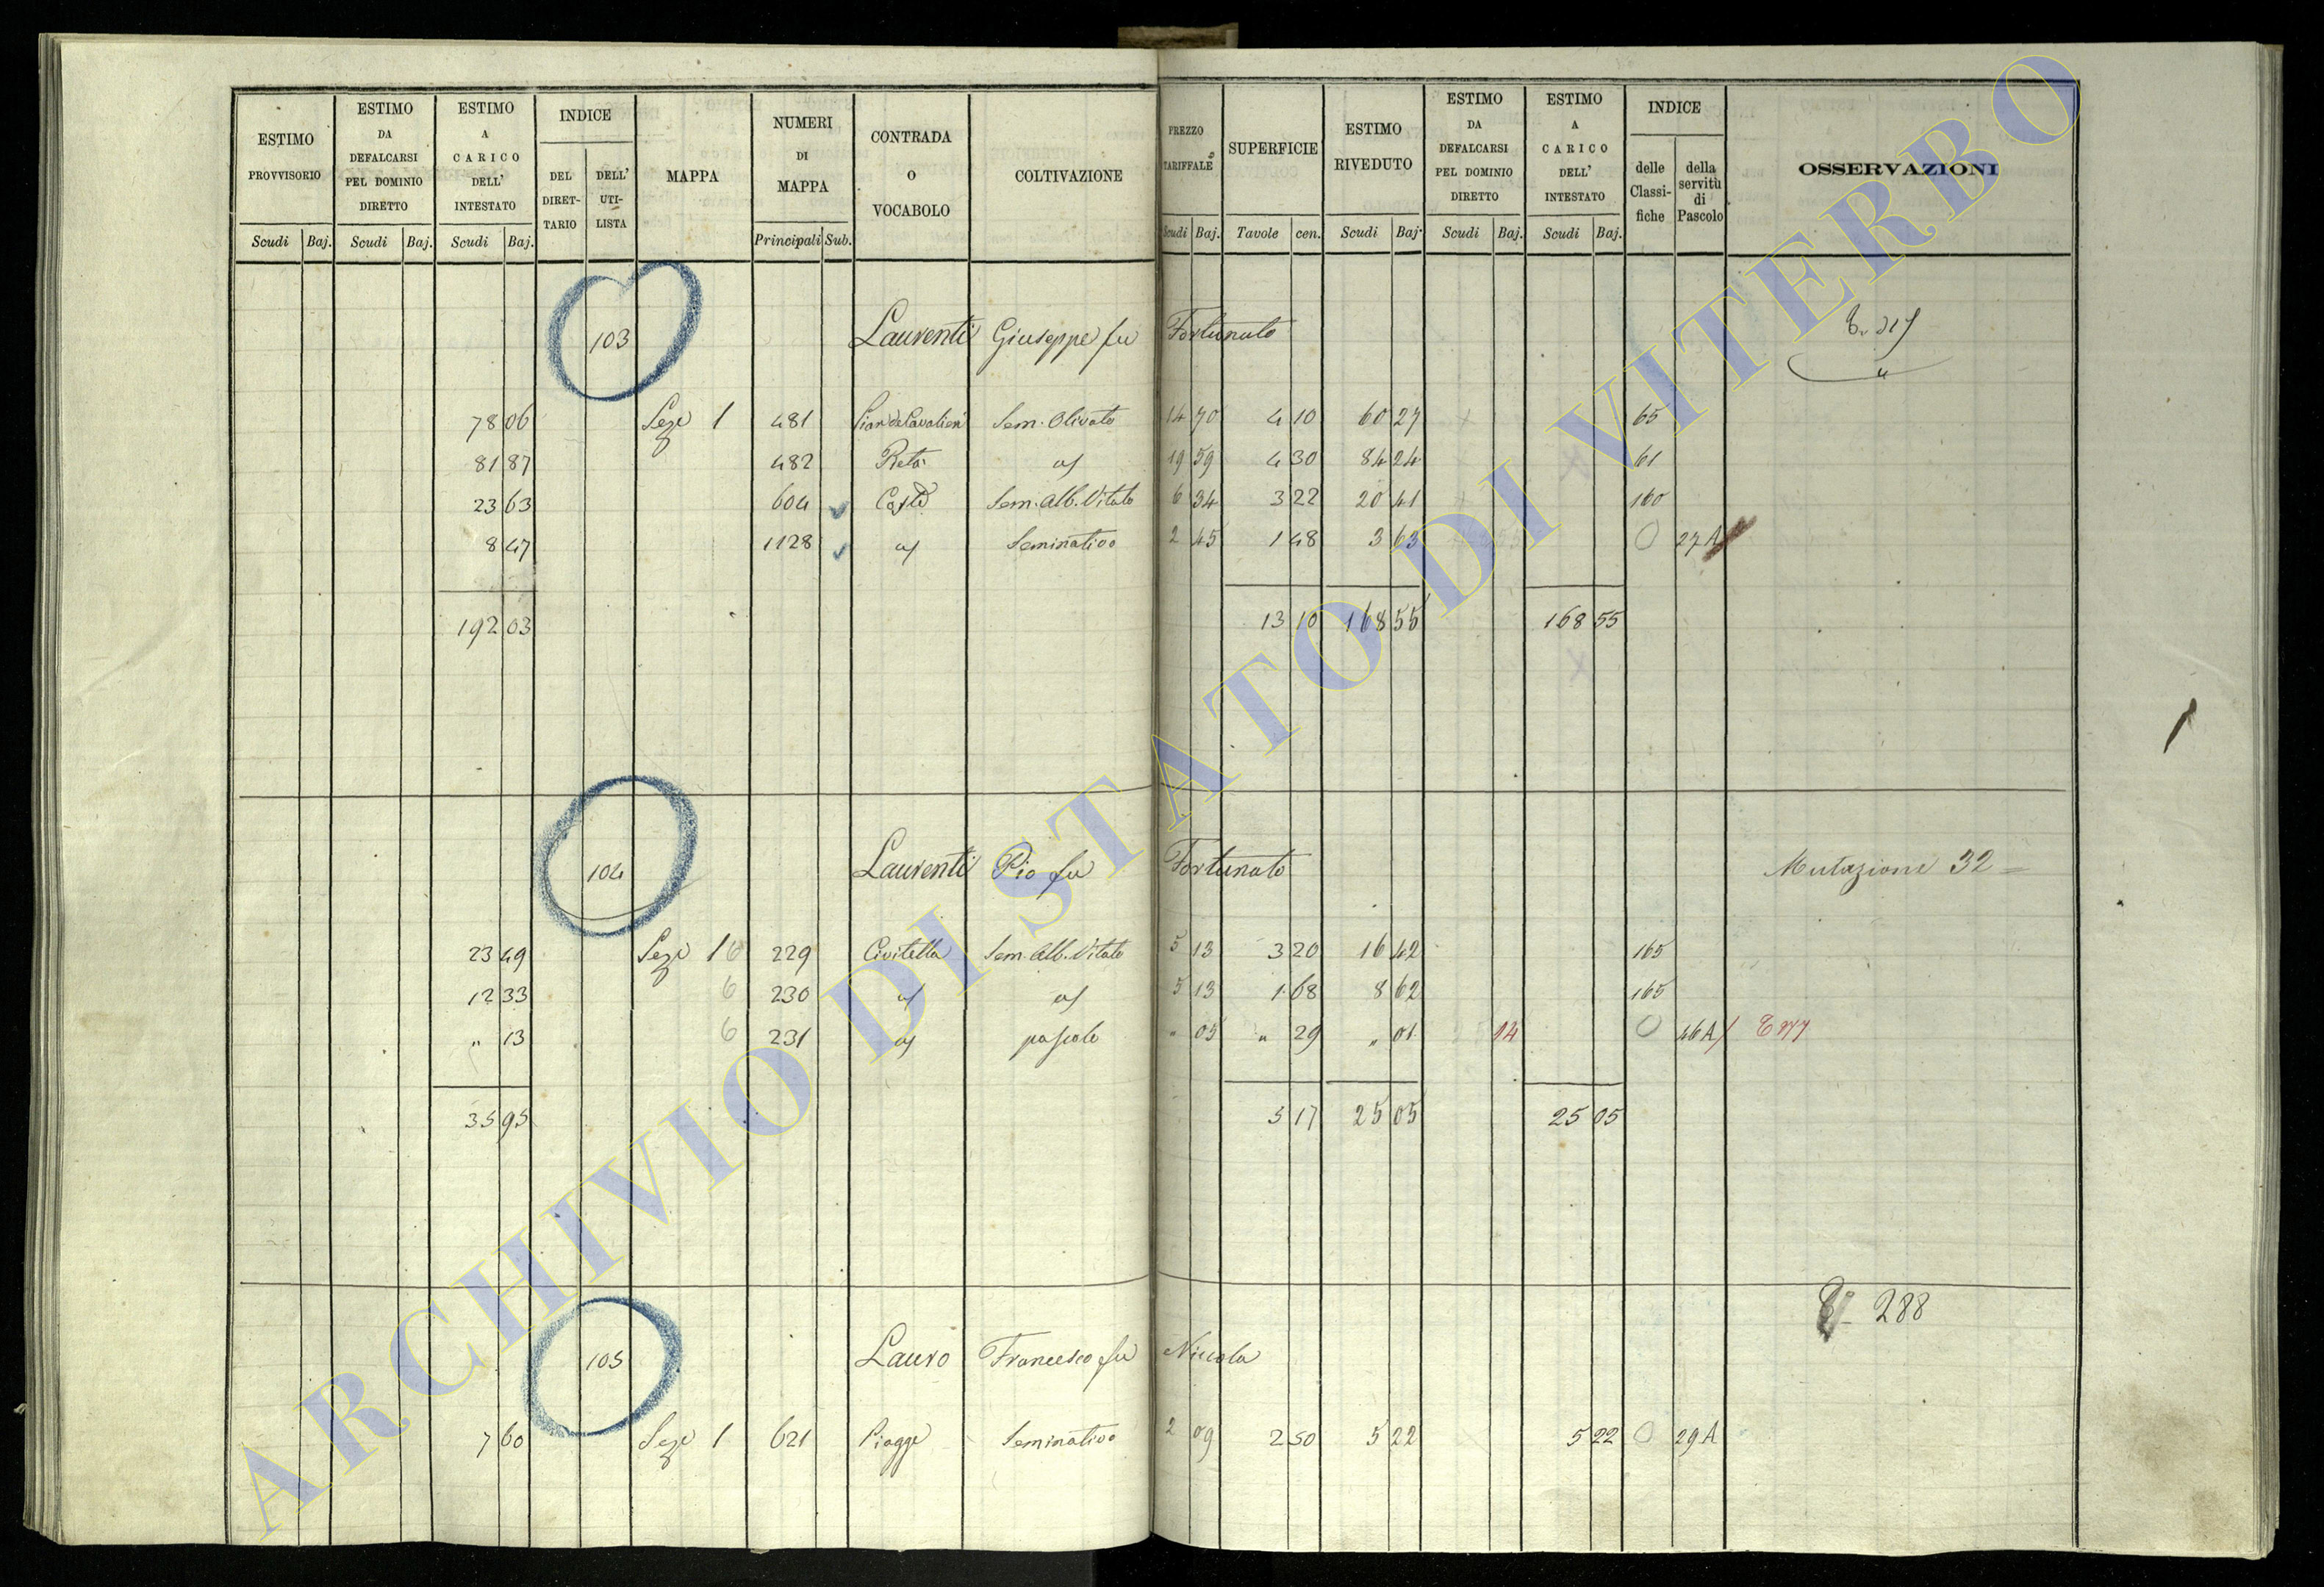 ESTIMO PROVVISORIO | ESTIMO DA DEFALCARSI PEL DOMINIO DIRETTO | ESTIMO A CARICO DELL' INTESTATO | INDICE | MAPPA | NUMERI DI MAPPA | CONTRADA O VOCABOLO | COLTIVAZIONE | PREZZO TARIFFALE | SUPERFICIE | ESTIMO RIVEDUTO | ESTIMO DA DEFALCARSI PEL DOMINIO DIRETTO | ESTIMO A CARICO DELL' INTESTATO | INDICE | OSSERVAZIONI
DEL DIRETTARIO | DELL' UTILISTA | delle Classifiche | della servitù di Pascolo
Scudi | Baj. | Scudi | Baj. | Scudi | Baj. | Principali | Sub. | Scudi | Baj. | Tavole | cen. | Scudi | Baj. | Scudi | Baj. | Scudi | Baj.
103 Laurenti Giuseppe fu Fortunato
78 06 Seze 1 481 Sem. Olivato 14 70 4 10 60 27 65
81 87 482 19 59 4 30 84 24 61
23 63 604 Sem. Alb. Vitato 6 34 3 22 20 41 160
8 47 1128 Seminativo 2 45 1 48 3 63 27 A
192 03 13 10 168 55 168 55
104 Laurenti Pio fu Fortunato Mutazione 32
23 49 Seze 1 6 229 Civitella Sem. Alb. Vitato 5 13 3 20 16 42 165
12 33 6 230 5 13 1 68 8 62 165
" 13 6 231 pascolo " 05 " 29 " 01 14 46 A
35 95 5 17 25 05 25 05
288
105 Lauro Francesco fu Niccola
7 60 Seze 1 621 Piagge Seminativo 2 09 2 50 5 22 5 22 29 A
ARCHIVIO DI STATO DI VITERBO